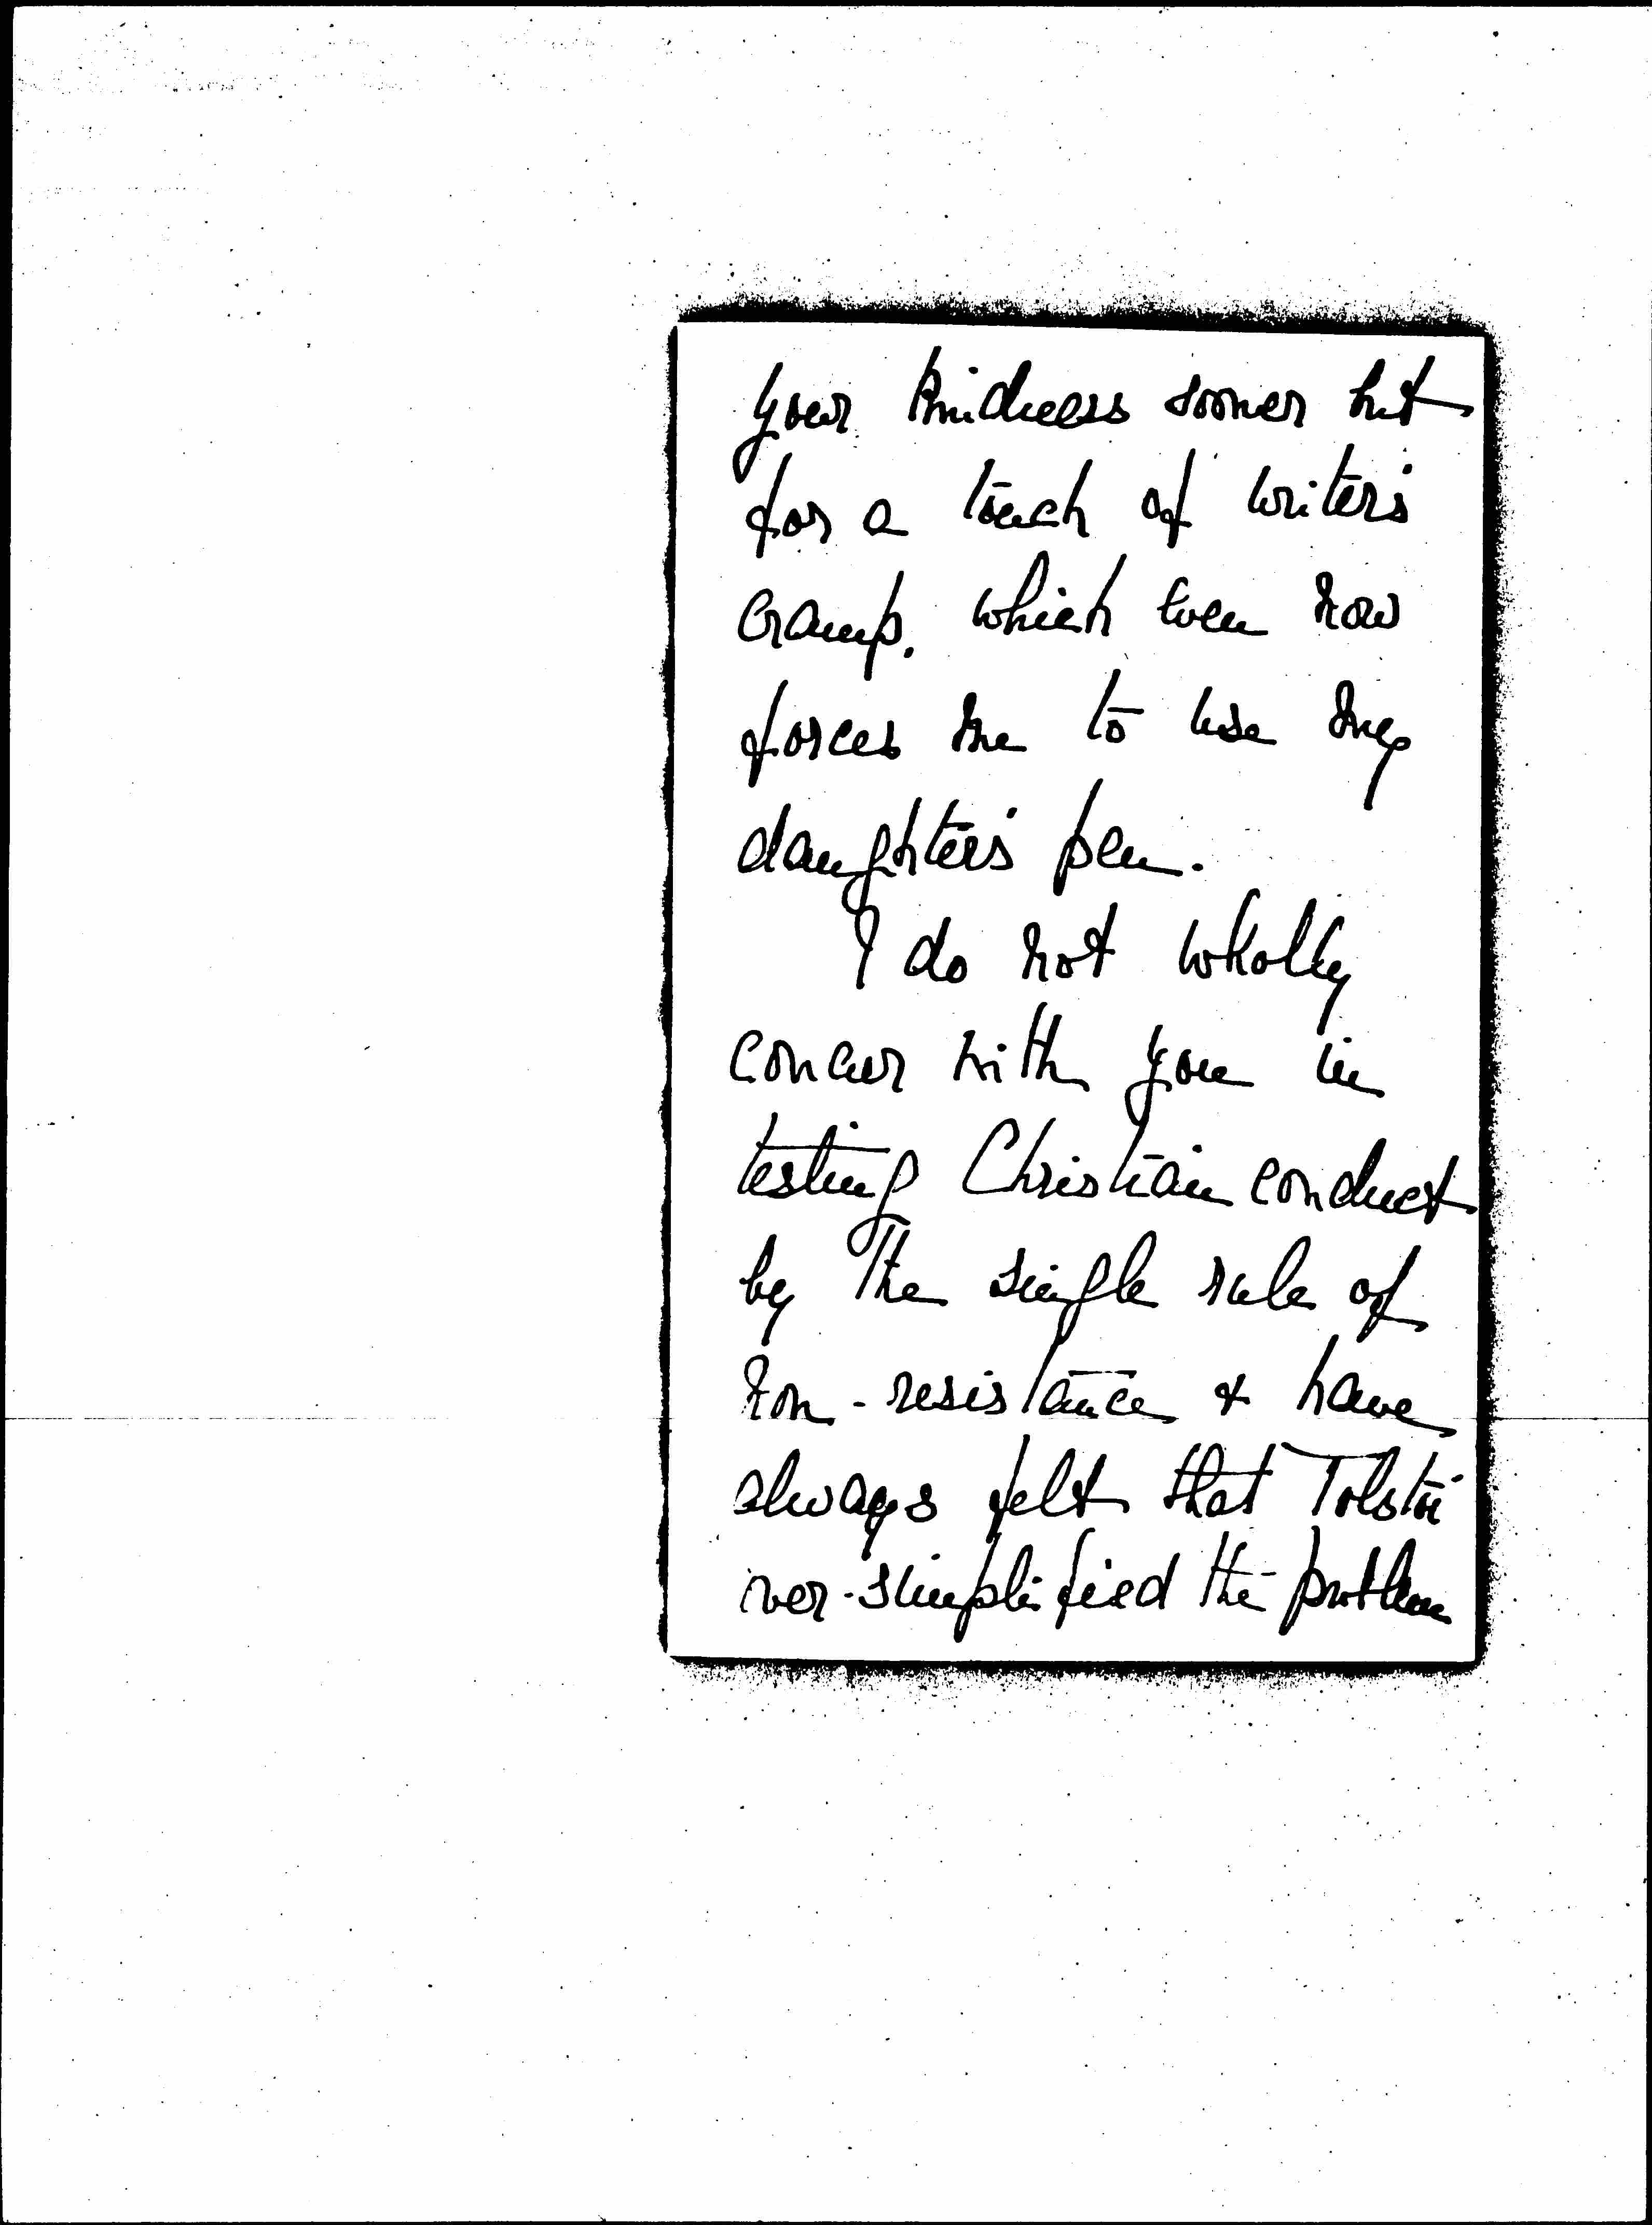 your kindness sooner but
for a touch of writer's
cramp. which even now
forces me to use my
daughter's pen.
I do not wholly
concur with you in
testing Christian conduct
by the single rule of
non-resistance & have
always felt that Tolstoi
over-simplified the problem